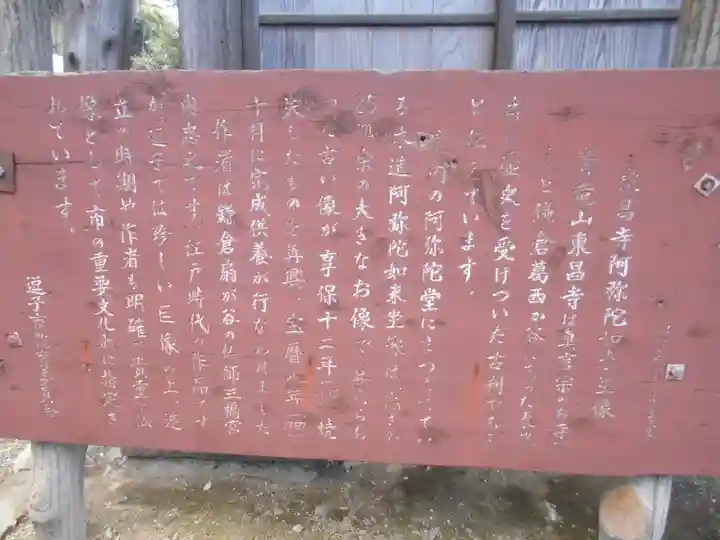 東昌寺阿弥陀如来坐像
青竜山東昌寺は真言宗のお寺で
と鎌倉葛西が谷にあった東勝
寺の歴史を受けついだ古刹である
と伝えています。
の阿弥陀堂にまつられてい
る木造阿弥陀如来坐像は高さが
余の大きなお像で
った古い像が享保十二年に焼
失したものを再興、宝暦
十月に完成供養が行なわれました
作者は鎌倉扇が谷の仏師三橋宮
内忠之です。江戸時代の作品です
が逗子では珍しい巨像の上、造
立の時期や作者も明確な貴重な仏
像として、市の重要文化財に指定さ
れています。
逗子市教育委員会